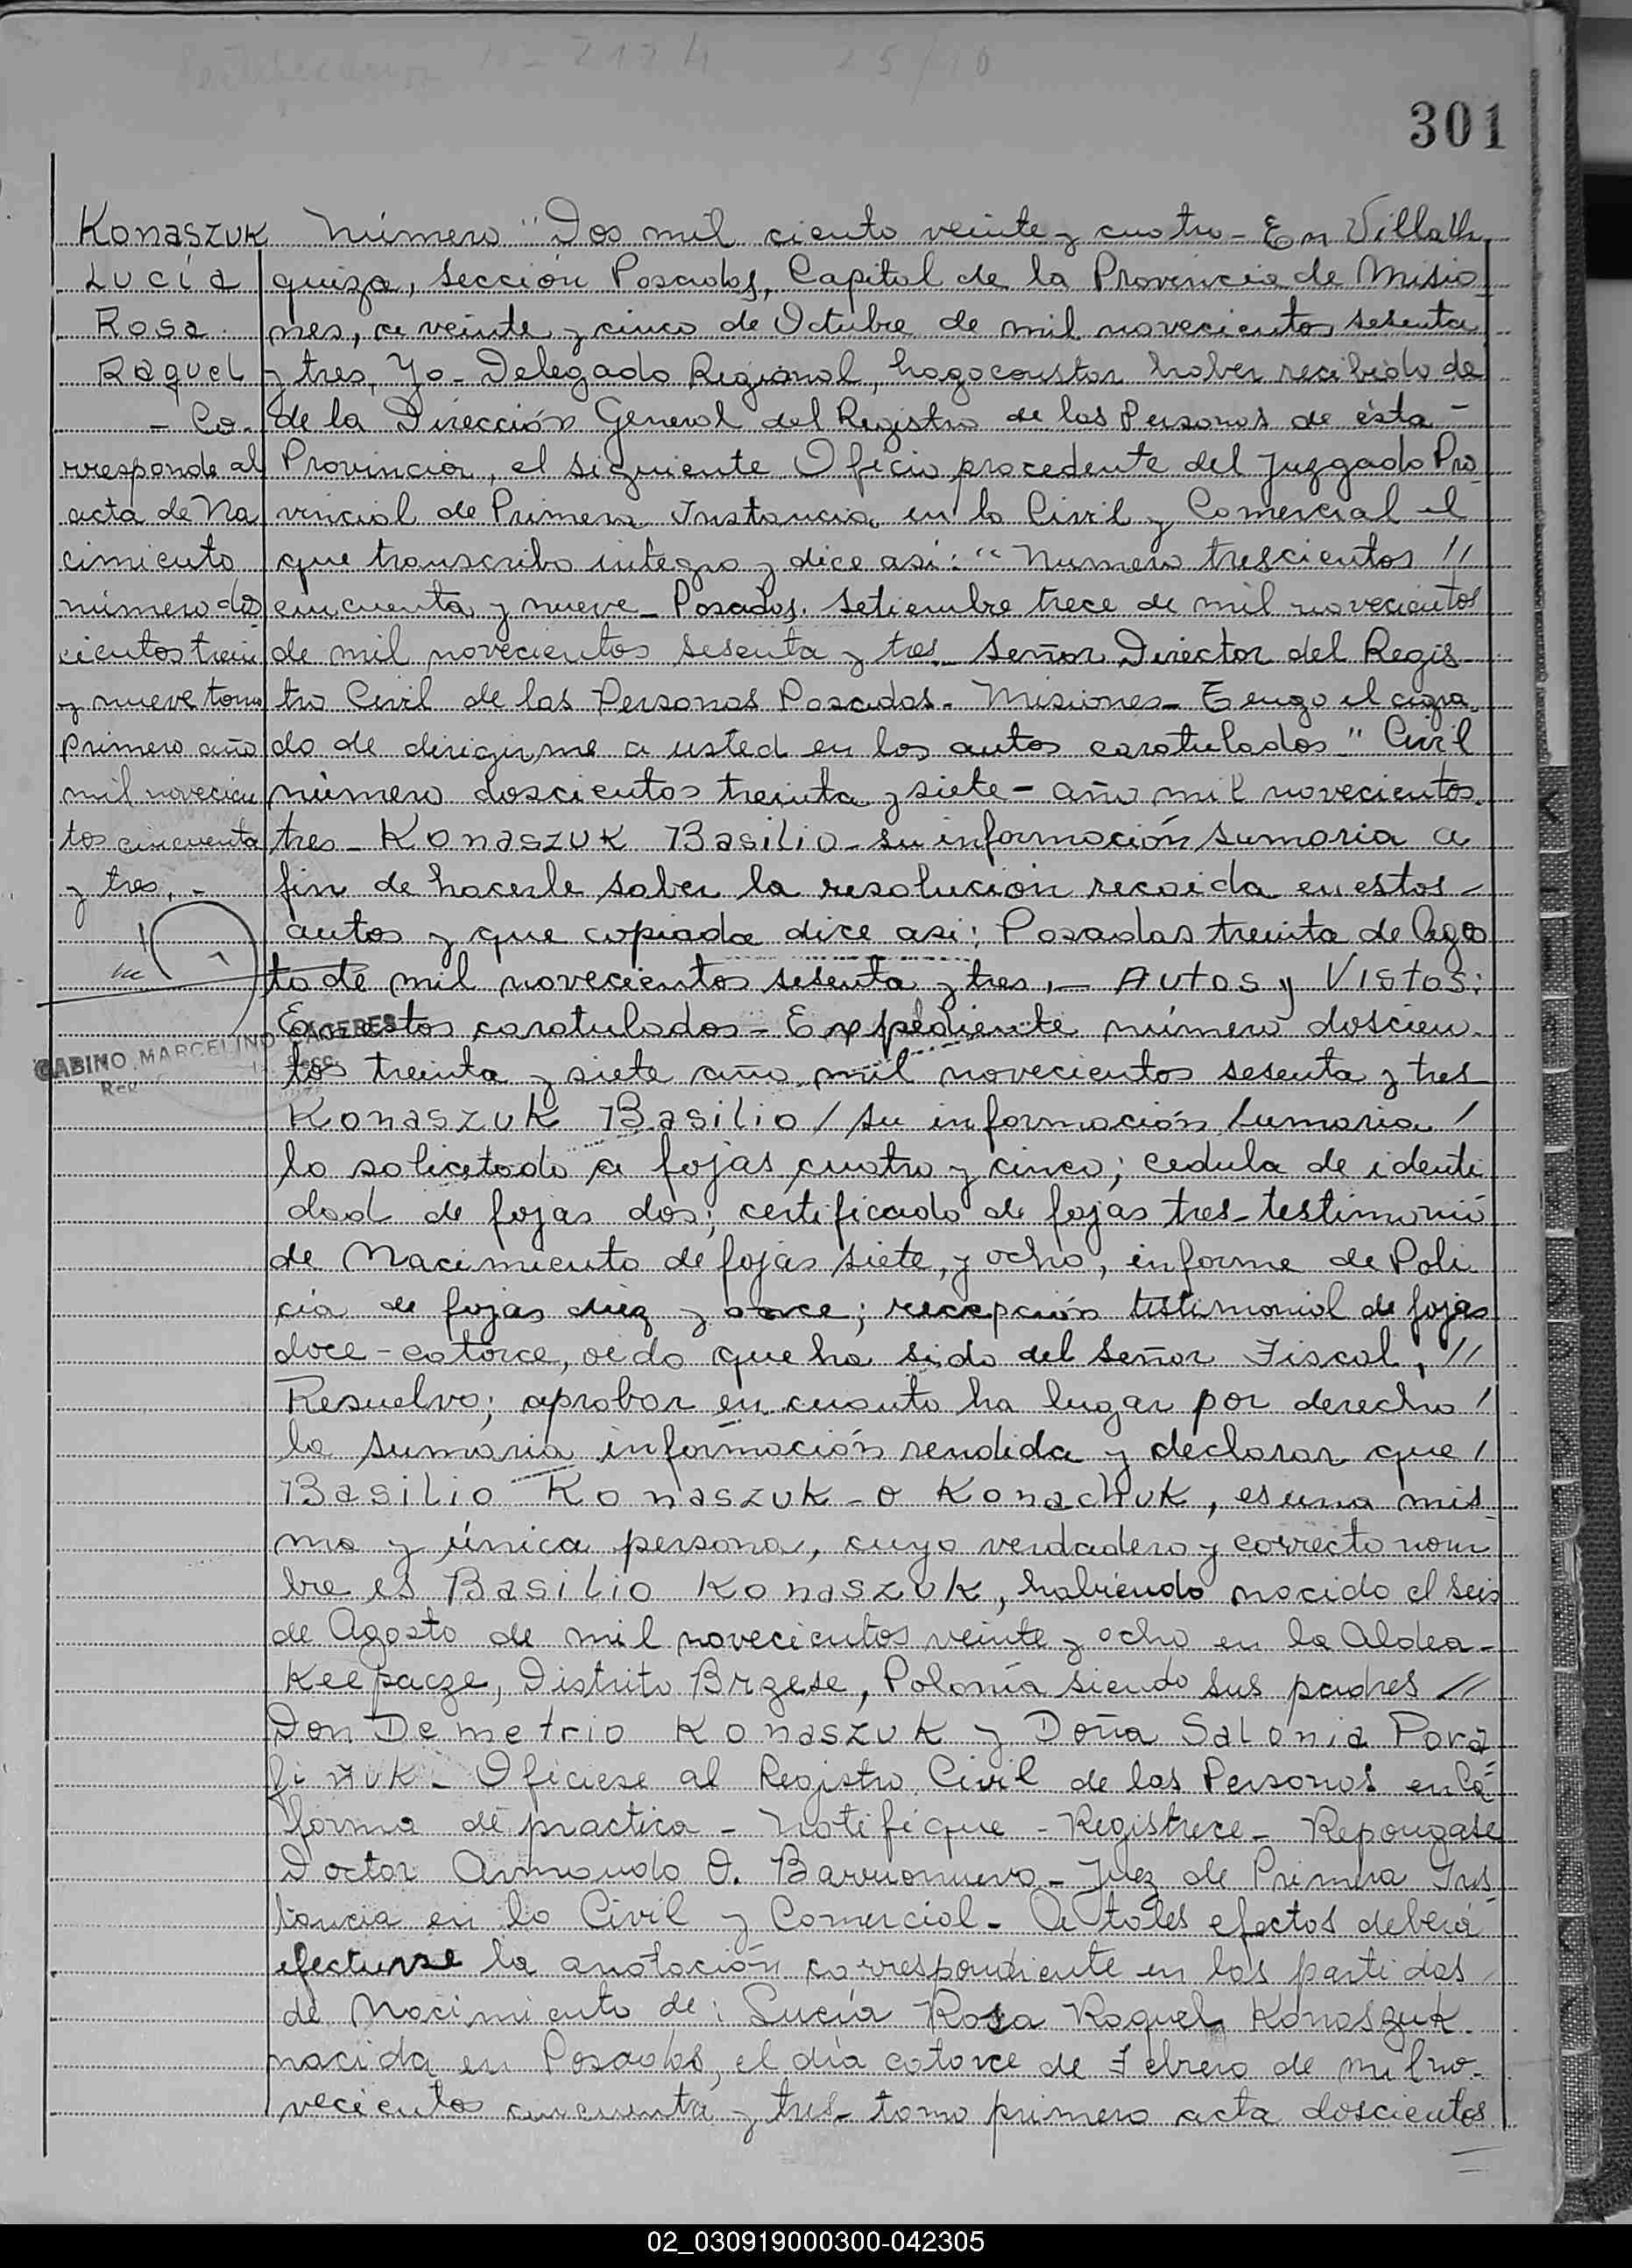 301
Konaszuk
Lucía
Rosa
Raquel
- Co.
rresponde al
acta de Na
cimiento
número dos
cientos trein
y nueve tomo
primero año
mil novecien
tos cincuenta
y tres. -
GABINO MARCELINO CACERES
Número "Dos mil ciento veinte y cuatro - En Villa Ur
quiza, sección Posadas, Capital de la Provincia de Misio
nes, a veinte y cinco de Octubre de mil novecientos sesenta
y tres, Yo - Delegado Regional, hago constar haber recibido de
de la Dirección General del Registro de las Personas de ésta -
Provincia, el siguiente Oficio procedente del Juzgado Pro
vincial de Primera Instancia en lo Civil y Comercial el
que transcribo integro y dice asi: "Numero trescientos //
cincuenta y nueve - Posadas, setiembre trece de mil novecientos
de mil novecientos sesenta y tres - Señor Director del Regis-
tro Civil de las Personas Posadas - Misiones - Tengo el agra
do de dirigirme a usted en los autos caratulados "Civil
número doscientos treinta y siete - año mil novecientos
tres - Konaszuk Basilio - su información sumaria a
fin de hacerle saber la resolución recaida en estos -
autos y que copiada dice asi: Posadas treinta de Agos
to de mil novecientos sesenta y tres. - Autos y Vistos:
En estos caratulados - Expediente número doscien
tos treinta y siete año mil novecientos sesenta y tres
Konaszuk Basilio / su información sumaria /
lo solicitado a fojas cuatro y cinco; cedula de identi
dad de fojas dos; certificado de fojas tres - testimonio
de Nacimiento de fojas siete, y ocho, informe de Poli
cía de fojas diez y once; recepción testimonial de fojas
doce - catorce, oido que ha sido del señor Fiscal, //
Resuelvo; aprobar en cuanto ha lugar por derecho /
la sumaria información rendida y declarar que /
Basilio Konaszuk - o Konachuk, es una mis
ma y única persona, cuyo verdadero y correcto nom
bre es Basilio Konaszuk, habiendo nacido el seis
de Agosto de mil novecientos veinte y ocho en la Aldea -
Keepacze, Distrito Brzese, Polonia siendo sus padres //
Don Demetrio Konaszuk y Doña Salonia Para
fi uk - Oficiese al Registro Civil de las Personas en la
forma de practica - Notifique - Registrece - Repongase
Doctor Armando O. Barrionuevo - Juez de Primera Ins
tancia en lo Civil y Comercial - A tales efectos deberá
efecturse la anotación correspondiente en las partidas
de Nacimiento de: Lucía Rosa Raquel Konaszuk
nacida en Posadas, el día catorce de Febrero de mil no-
vecientos cincuenta y tres - tomo primero acta doscientos
02_030919000300-042305